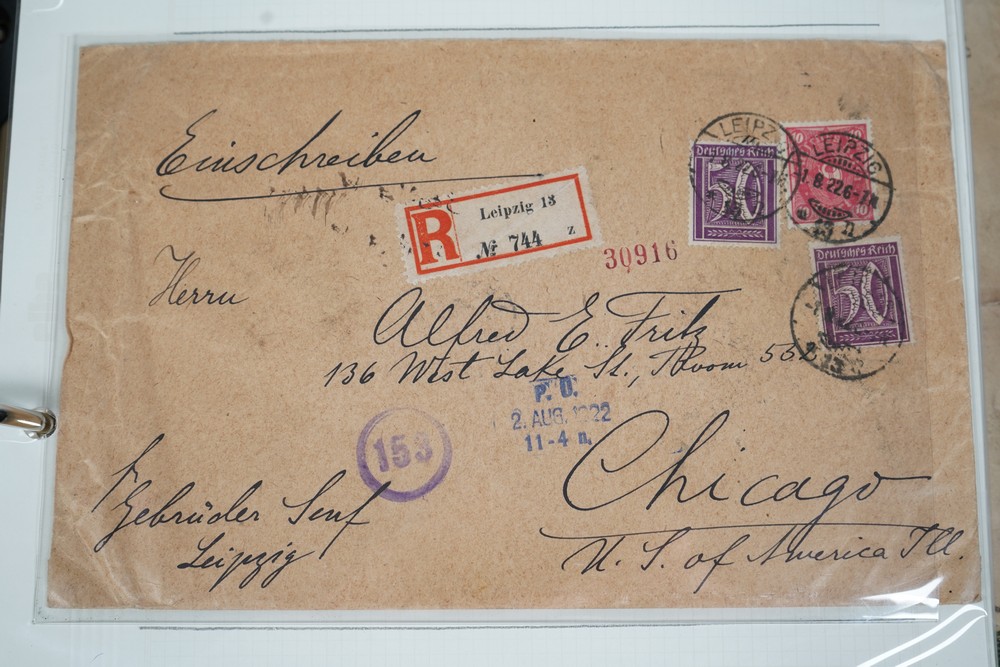 Einschreiben
LEIPZIG
Deutsches Reich
50
10
10
10
LEIPZIG
1.8.22.6-7N
13
R
Leipzig 13
№ 744 z
30916
Deutsches Reich
50
13
Herrn
Alfred E. Fritz
136 West Lake St., Room
P. O.
2. AUG. 1922
11-4 n.
153
Chicago
U. S. of America Ill.
Gebrüder Senf
Leipzig